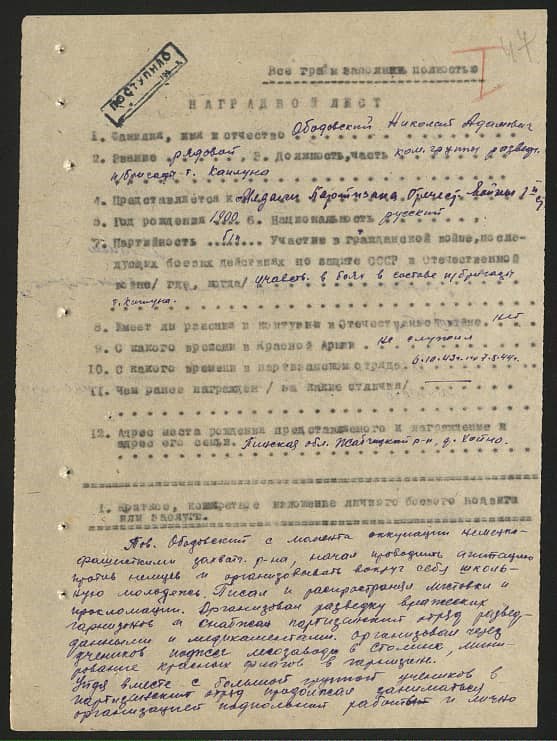 47
I
ПОСТУПИЛО
Все графы заполнять полностью
НАГРАДНОЙ ЛИСТ
1. Фамилия, имя и отчество Ободовский Николай Адамович
2. Звание рядовой, 3. Должность, часть ком. группы разведч.
п/бригады т. Каплуна
4. Представляется к Медали Партизана Отечест. Войны
5. Год рождения 1900 6. Национальность русский
7. Партийность б/п Участие в гражданской войне, после-
дующих боевых действиях по защите СССР и Отечественной
войне/ где, когда/ участв. в боях в составе п/бригады
т. Каплуна.
8. Имеет ли ранения и контузии в Отечественной войне. нет
9. С какого времени в Красной Армии не служил
10. С какого времени в партизанском отряде.
11. Чем ранее награжден / за какие отличия/
12. Адрес места рождения представляемого к награждению и
адрес его семьи. Пинская обл. р-н, д. Хойно.
1. Краткое, конкретное изложение личного боевого подвига
или заслуг.
Тов. Ободовский с момента оккупации немецко-
фашистками захватч. р-на, начал проводить агитацию
против немцев и организовывать вокруг себя школь-
ную молодежь. Писал и распространял листовки и
прокламации. Организовал разведку вражеских
гарнизонов и снабжал партизанский отряд развед-
данными и медикаментами. Организовал через
учеников поджог лесозавода в Столине, мини-
рование красных флагов в гарнизоне.
Уйдя вместе с большой группой учеников в
партизанский отряд продолжал заниматься
организацией подпольной работы и лично